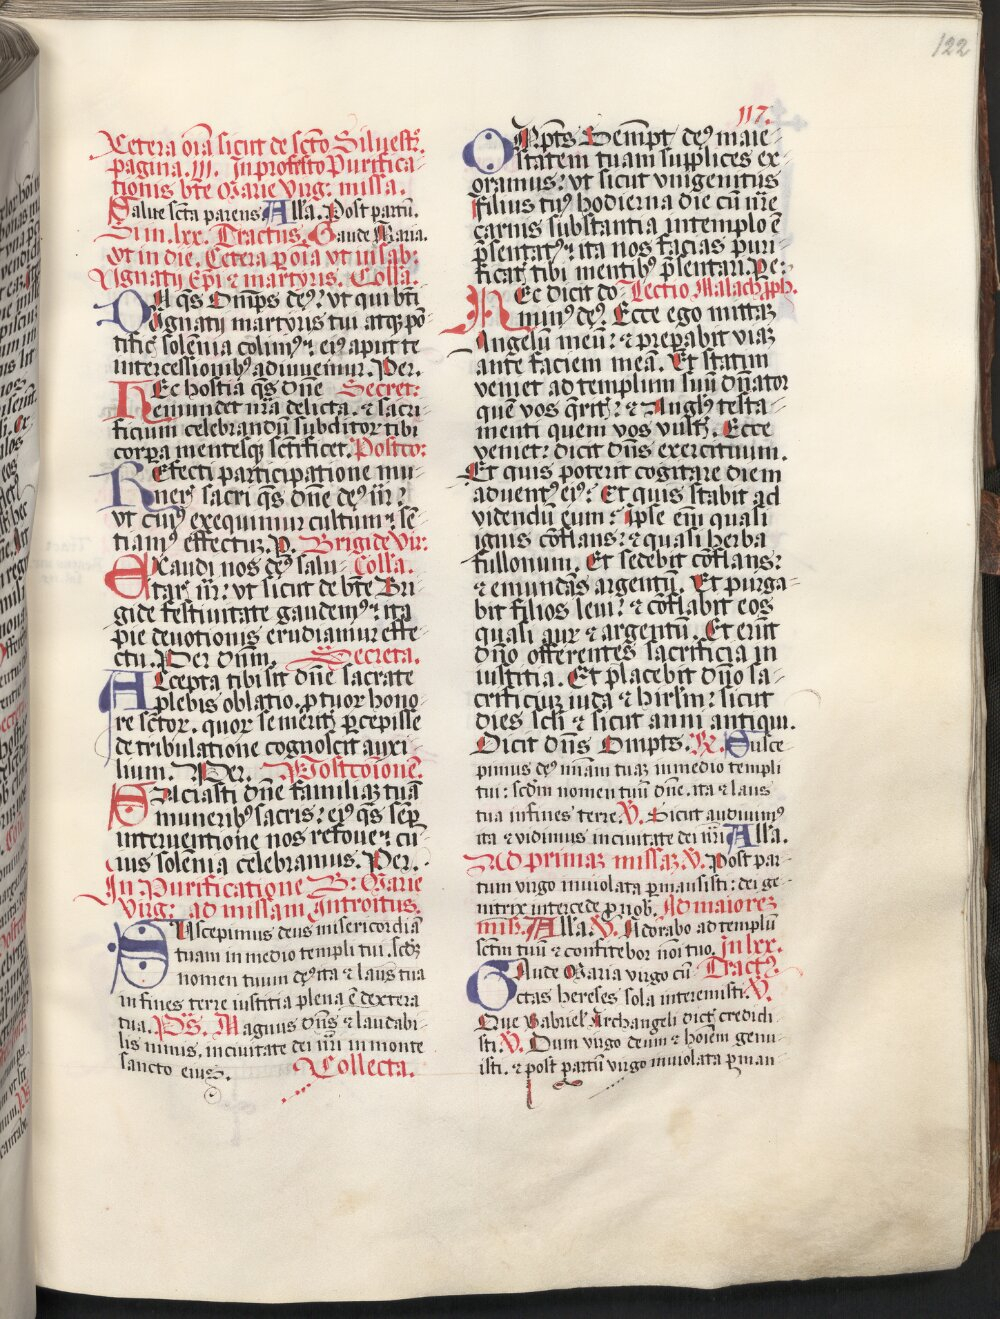 122
117.
Cetera oīa sicut de scto Siluestr̄.
pagina. III. In profesto Purifica-
tionis bte Marie Virg: missa.
Salue scta parens Alla. Post partū.
Si in lxx. Tractus. Gaude Maria.
Vt in die. Cetera p oīa vt in sab:
Ignatij Epī & martyris. Colla.
DA qs Omps deꝰ: vt qui bti
Ignatij martyris tui atqꝫ pō-
tific̄ solēnia colimꝰ: eiꝰ aput te
intercessionibꝰ adiuuemur. Per.
HEc hostia qs dn̄e Secret:
emundet nr̄a delicta. & sacri-
ficium celebrandū subditor tibi
corpa mentesqꝫ sctificet. Postco:
REfecti participatione mu-
neris sacri qs dn̄e deꝰ nr̄:
vt cuiꝰ exequimur cultum: sē-
tiamꝰ effectū. P. Brigide Vir:
EXaudi nos deꝰ salu- Colla.
taris nr̄: vt sicut de bte Bri-
gide festiuitate gaudemꝰ: ita
pie deuotionis erudiamur effe-
ctu. Per dn̄m. Secreta.
ACcepta tibi sit dn̄e sacrate
plebis oblatio. p tuor hono-
re sctor. quor se meritꝭ pcepisse
de tribulatione cognoscit auxi-
lium. Per. Postcōione.
SAciasti dn̄e familiaꝫ tuā
muneribꝰ sacris: eiꝰ qs semp
interuentione nos refoue: cu-
ius solēnia celebramus. Per.
In Purificatione B: Marie
Virg: ad missam Introitus.
SVscepimus deus misericordiā
tuam in medio templi tui. scdꝫ
nomen tuum deꝰ ita & laus tua
in fines terre iustitia plena ē dextera
tua. Ps. Magnus dn̄s & laudabi-
lis nimis. in ciuitate dei nr̄i in monte
sancto eius. Collecta.
OMpts Sempt deꝰ maie-
statem tuam supplices ex-
oramus: vt sicut vnigenitus
filius tuꝰ hodierna die cū nr̄e
carnis substantia in templo ē
p̄sentatꝰ: ita nos facias puri-
ficatꝭ tibi mentibꝰ p̄sentari. Pe:
HEc dicit do- Lectio Malach pph.
minꝰ deꝰ: Ecce ego mittaꝫ
Angelū meū: & preparabit viaꝫ
ante faciem meā. Et statim
veniet ad templum suū dn̄ator
quē vos q̄ritꝭ: & Anglꝰ testa-
menti quem vos vultꝭ. Ecce
veniet: dicit dn̄s exercituum.
Et quis poterit cogitare diem
aduentꝰ eiꝰ: Et quis stabit ad
videndū eum: Ipse eīm quasi
ignis cōflans: & quasi herba
fullonum. Et sedebit cōflans:
& emundās argentū. Et purga-
bit filios leui: & cōflabit eos
quasi aurū & argentū. Et erūt
dn̄o offerentes sacrificia in
iustitia. Et placebit dn̄o sa-
crificiuꝫ iuda & hirlm̄: sicut
dies scli & sicut anni antiqui.
Dicit dn̄s Ompts. R. Susce-
pimus deꝰ miam̄ tuaꝫ in medio templi
tui: scdm nomen tuū dn̄e. ita & laus
tua in fines terre. V. Sicut audiuimꝰ
ita & vidimus in ciuitate dei nr̄i Alla.
Ad primaꝫ missaꝫ. V. Post par-
tum virgo inuiolata pmansisti: dei ge-
nitrix intercede p nob. Ad maiorem
miss: Alla. V. Adorabo ad templū
sctm tuū & confitebor noī tuo. In lxx.
GAude Maria virgo cū- Tractꝰ.
ctas hereses sola interemisti. V.
Que Gabriel Archangeli dictꝭ credidi-
sti. V. Dum virgo deum & hoīem genu-
isti. & post partū virgo inuiolata pman-